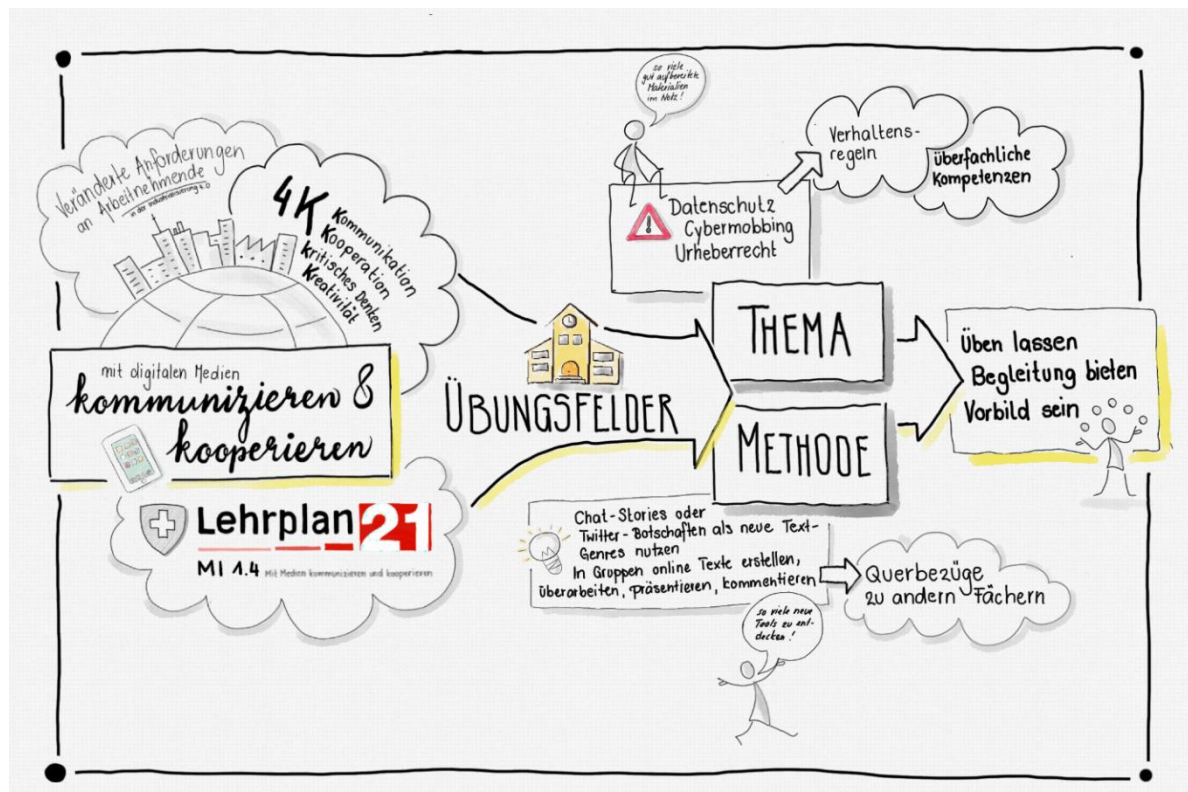 Veränderte Anforderungen
an Arbeitnehmende
in der Industrialisierung 4.0
4K
Kommunikation
Kooperation
Kritisches Denken
Kreativität
mit digitalen Medien
kommunizieren &
kooperieren
Lehrplan 21
MI 1.4 Mit Medien kommunizieren und kooperieren
ÜBUNGSFELDER
so viele
gut aufbereitete
Materialien
im Netz!
Datenschutz
Cybermobbing
Urheberrecht
Verhaltens-
regeln
überfachliche
Kompetenzen
THEMA
METHODE
Chat-Stories oder
Twitter-Botschaften als neue Text-
Genres nutzen
In Gruppen online Texte erstellen,
überarbeiten, präsentieren, kommentieren
Querbezüge
zu andern Fächern
so viele neue
Tools zu ent-
decken!
Üben lassen
Begleitung bieten
Vorbild sein